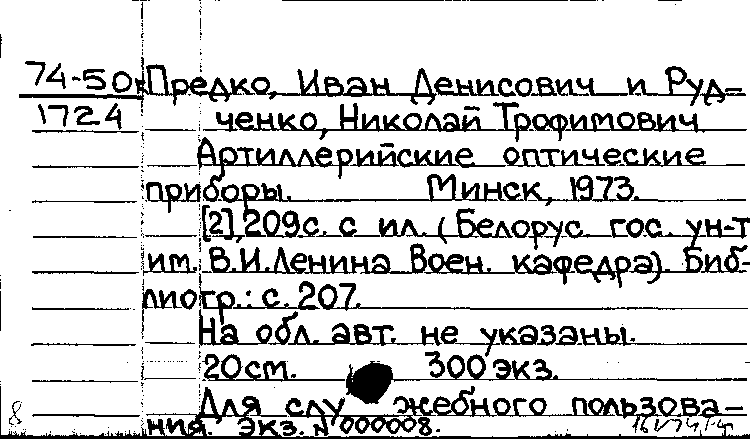 74-50к Предко, Иван Денисович и Руд-
1724 ченко, Николай Трофимович
Артиллерийские оптические
приборы. Минск, 1973.
[2], 209с. с ил. (Белорус. гос. ун-т
им. В.И.Ленина Воен. кафедра). Биб-
лиогр.: с. 207.
На обл. авт. не указаны.
20см. 300 экз.
Для служебного пользова-
ния. Экз. № 000008.
8